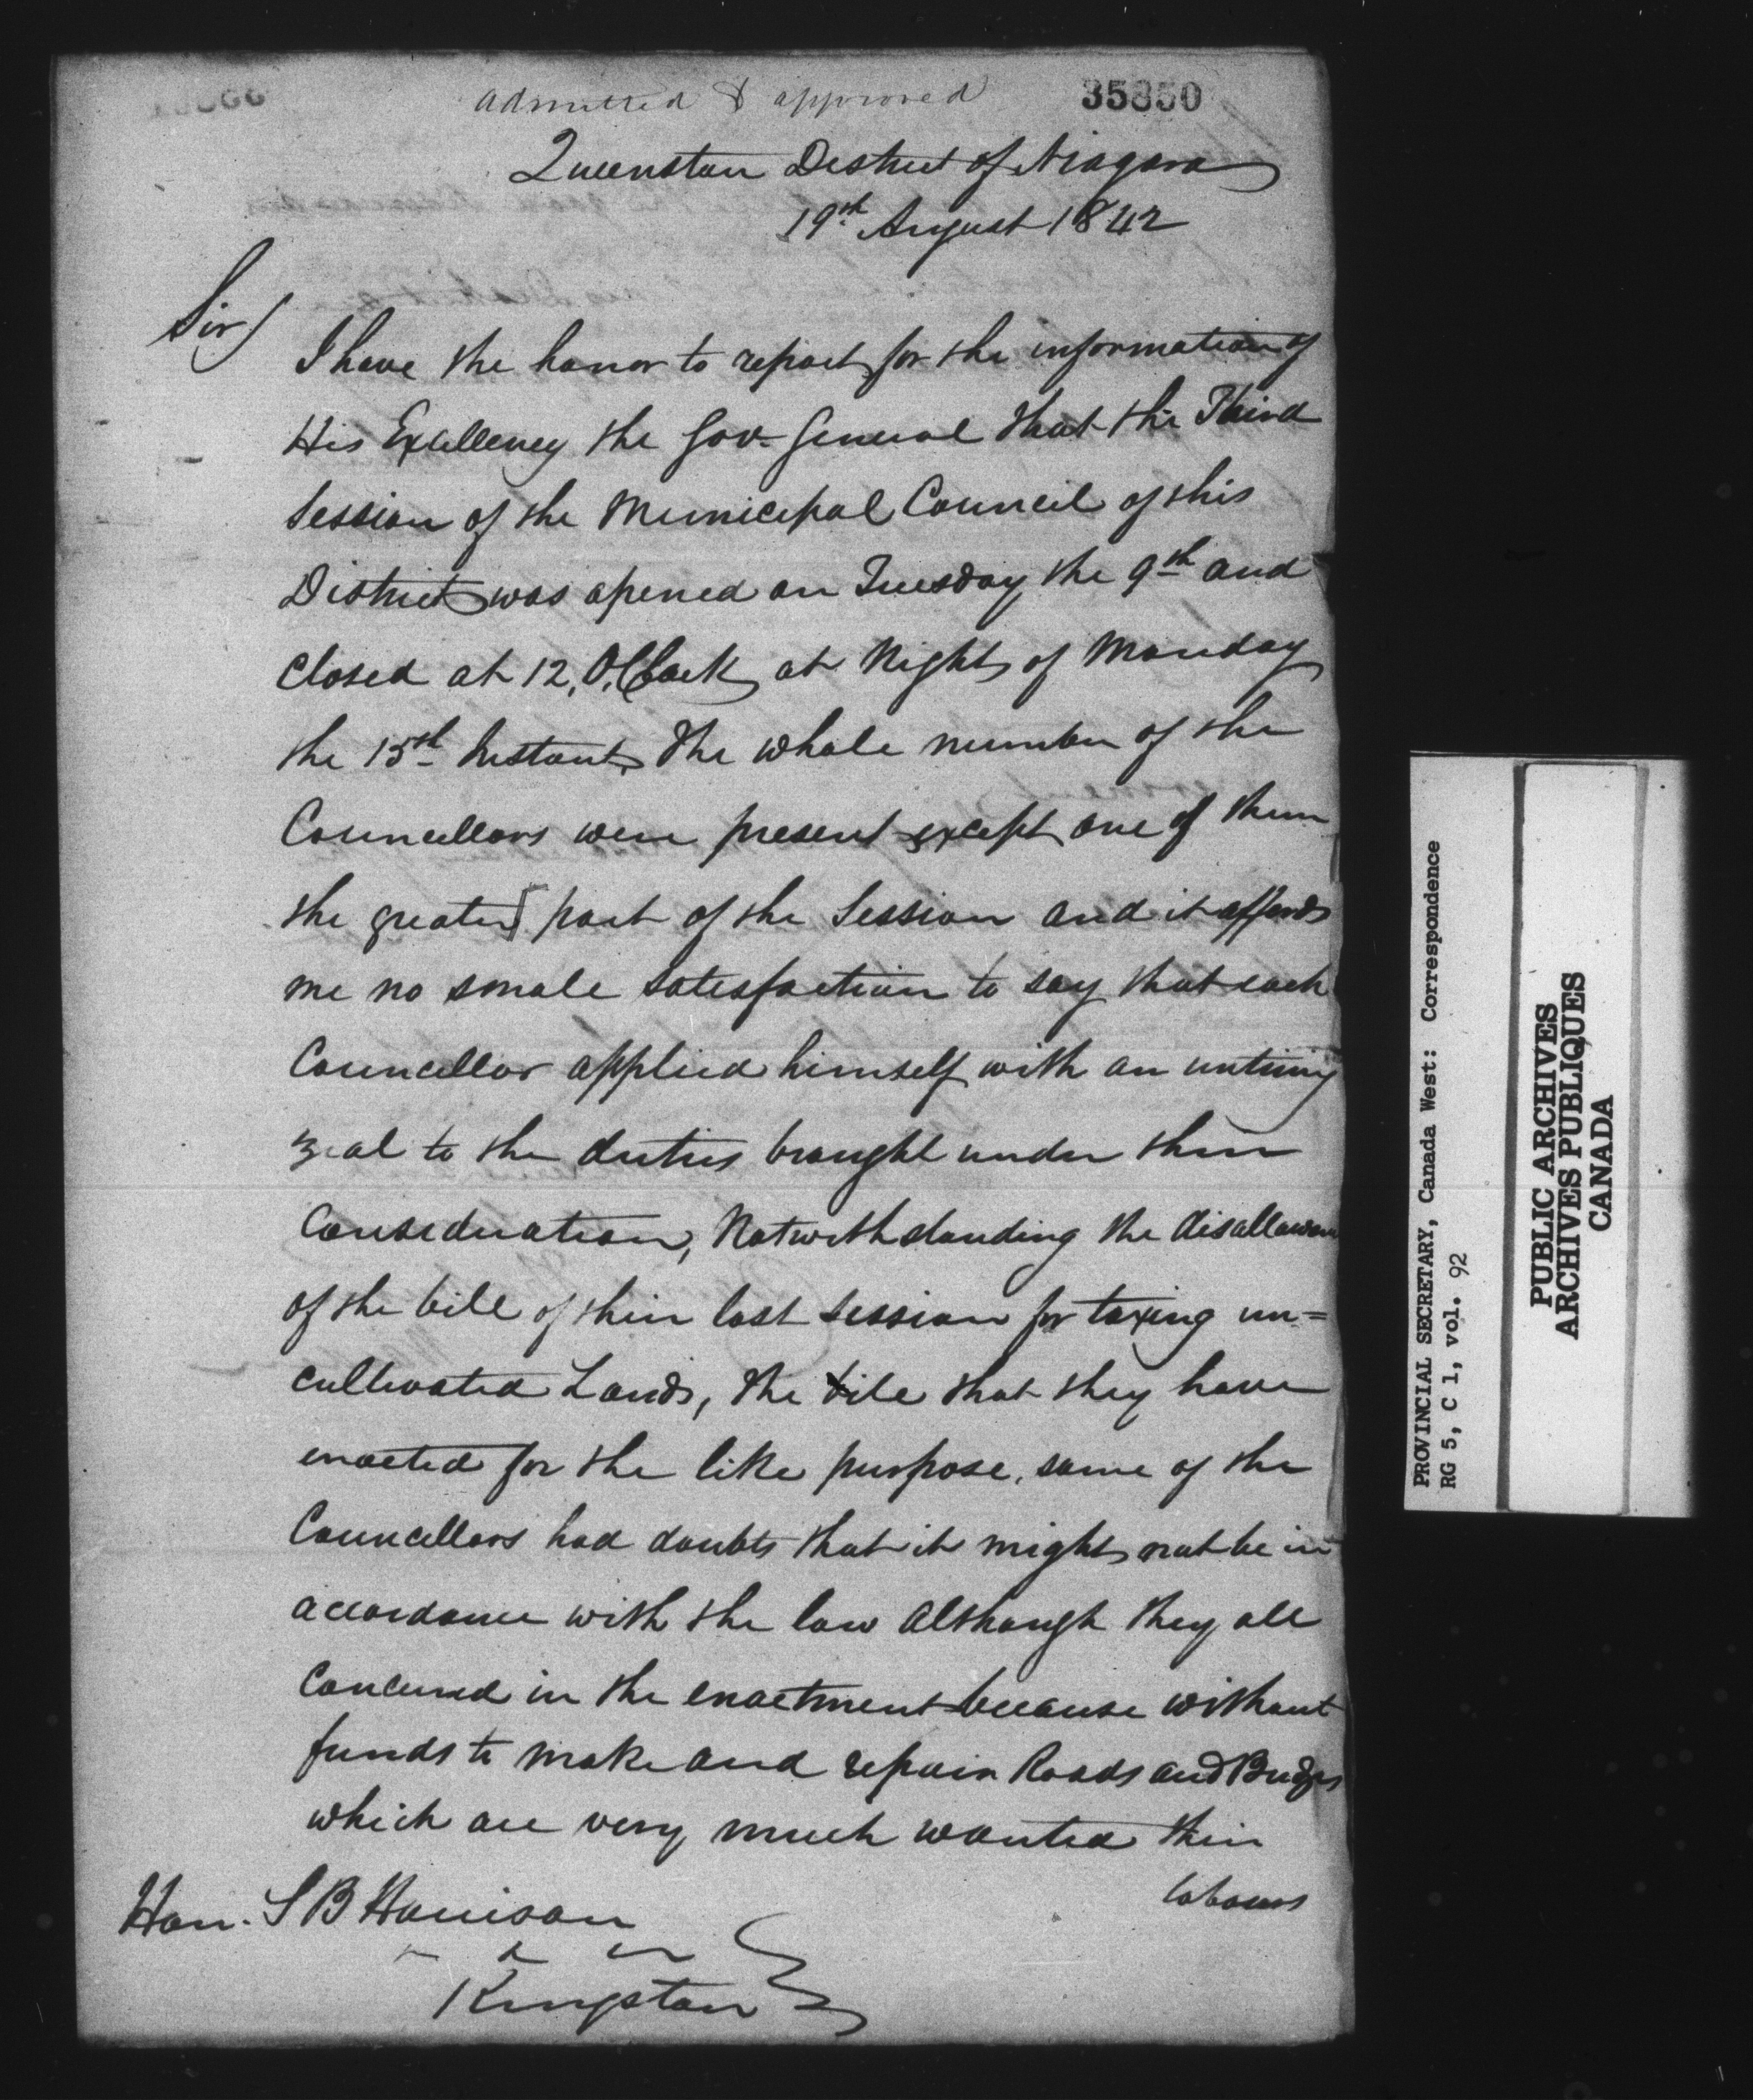 admitted & approved 35850
Queenston District of Niagara
19th August 1842
Sir/
I have the honor to report for the information of
His Excellency the Gov. General that the Third
Session of the Municipal Council of this
District was opened on Tuesday the 9th and
closed at 12, O,Clock at Night of Monday
the 15th Instant, The whole number of the
Councellors were present except one of them
the greater part of the Session and it affords
me no smale satisfaction to say that each
Councellor applied himself with an untiring
zeal to the duties brought under their
Consideration, Notwithstanding the disallowance
of the bill of their last session for taxing un=
cultivated Lands, the bile that they have
enacted for the like purpose, some of the
Councellors had doubts that it might not be in
accordance with the law although they all
Concurred in the enactment because without
funds to make and repair Roads and Bridges
which are very much wanted their
labours
Hon. S B Harrison
Kingston
PROVINCIAL SECRETARY, Canada West: Correspondence
RG 5, C 1, vol. 92
PUBLIC ARCHIVES
ARCHIVES PUBLIQUES
CANADA